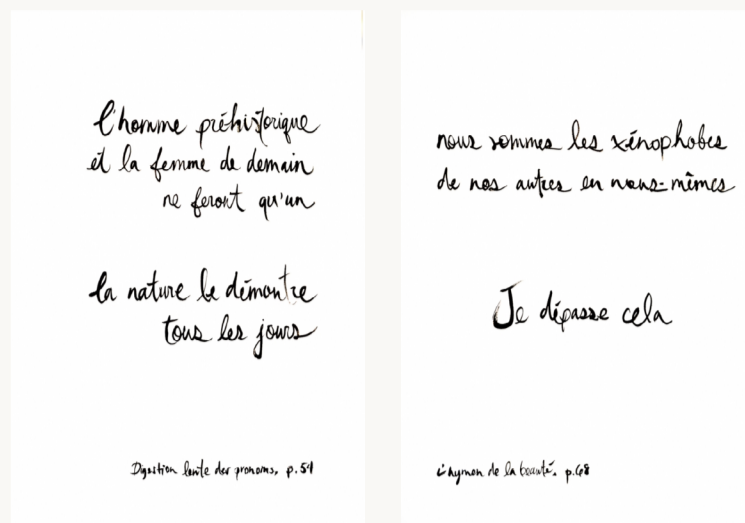 l'homme préhistorique
et la femme de demain
ne feront qu'un
la nature le démontre
tous les jours
Digestion lente des pronoms, p.51
nous sommes les xénophobes
de nos autres en nous-mêmes
Je dépasse cela
de la beauté. p.68